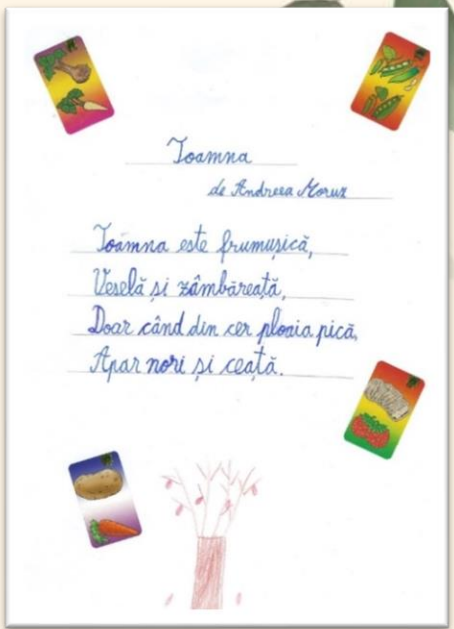 Toamna
de Andreea Moruz
Toamna este frumușică,
Veselă și zâmbăreață,
Doar când din cer ploaia pică,
Apar nori și ceață.